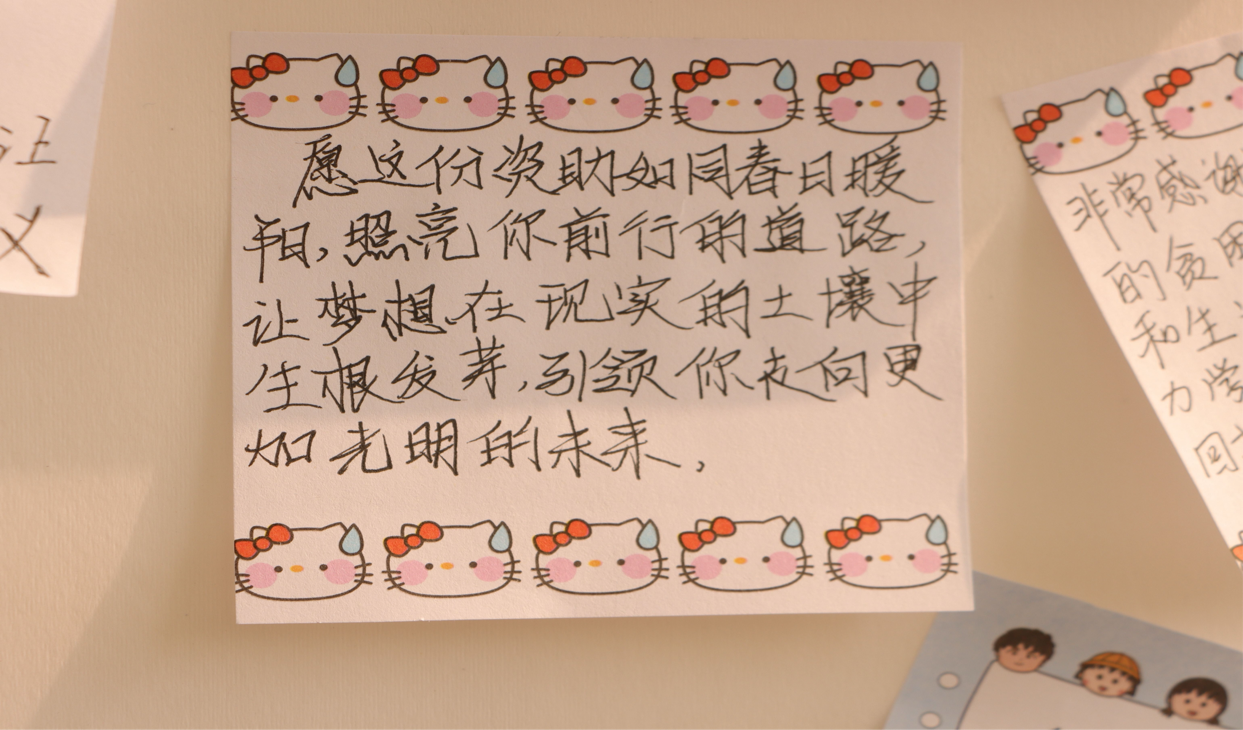 愿这份资助如同春日暖
阳,照亮你前行的道路,
让梦想在现实的土壤中
生根发芽,引领你走向更
加光明的未来.
让
义
非常感谢
的贫困
和生
力学
回